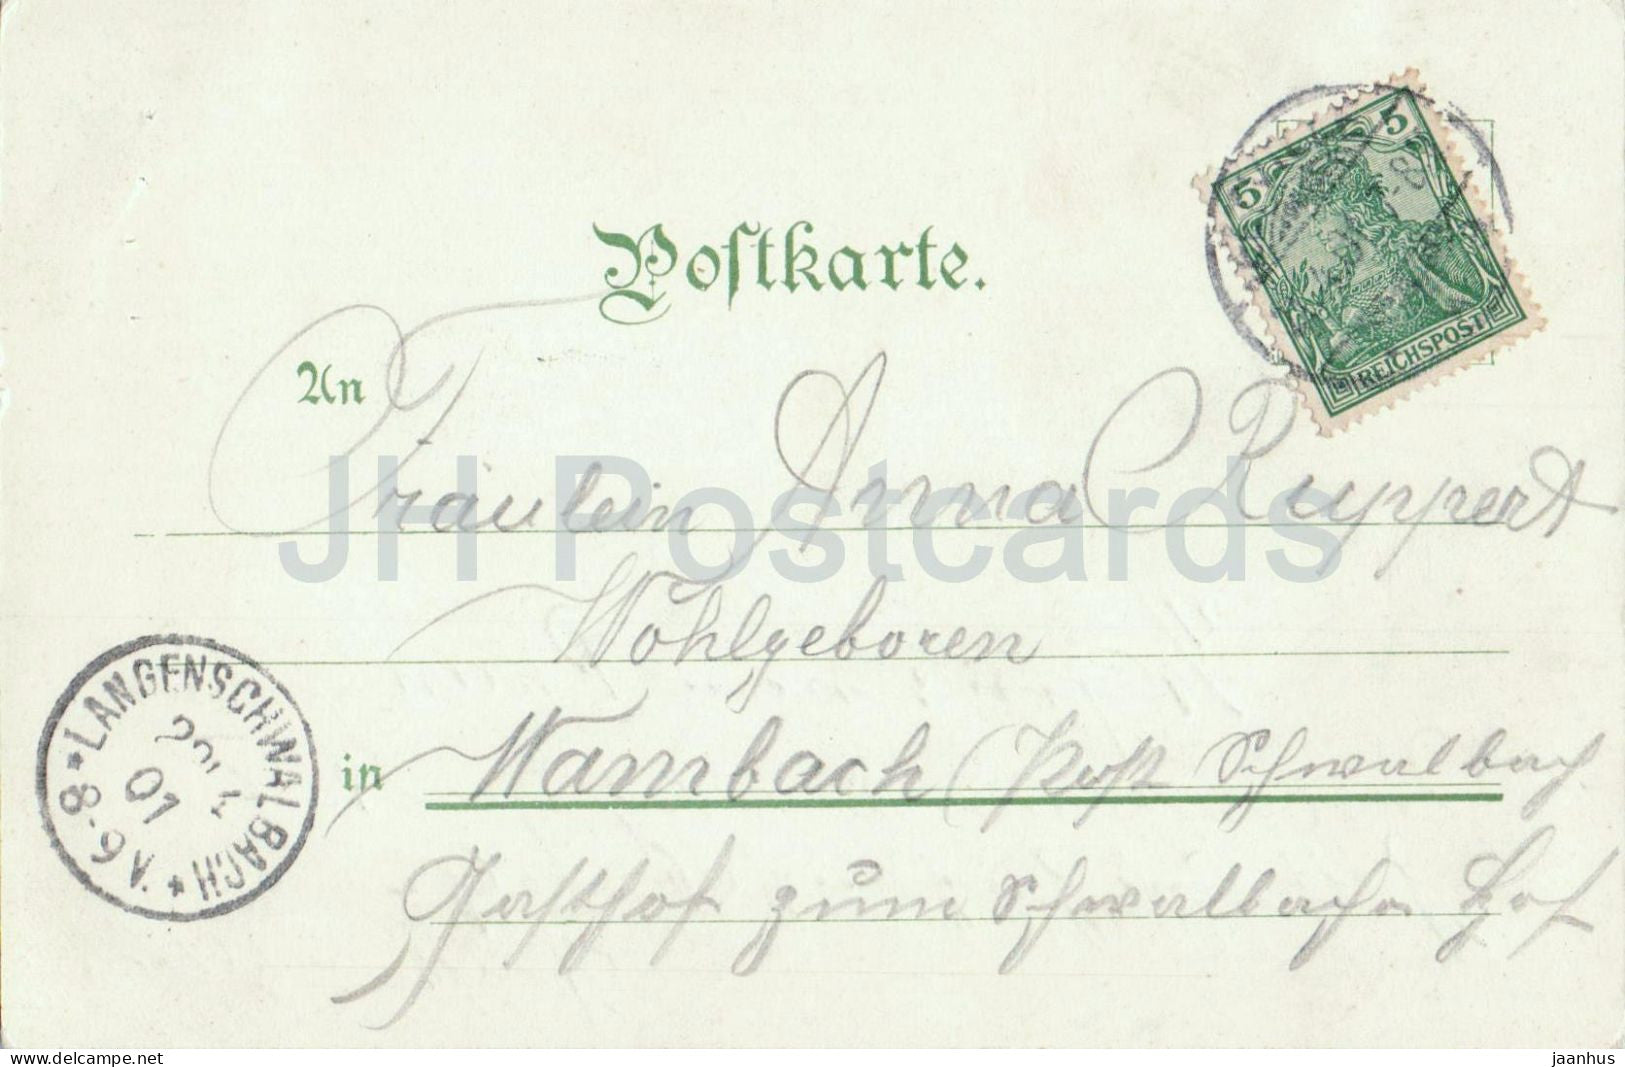 Postkarte.
5 5
REICHSPOST
An
Fräulein Anna Ruppert
Wohlgeboren
in Wambach (Post Schwalbach
Gasthof zum Schwalbacher Hof
* LANGENSCHWALBACH *
01
V. 6-8
JH Postcards
www.delcampe.net
jaanhus